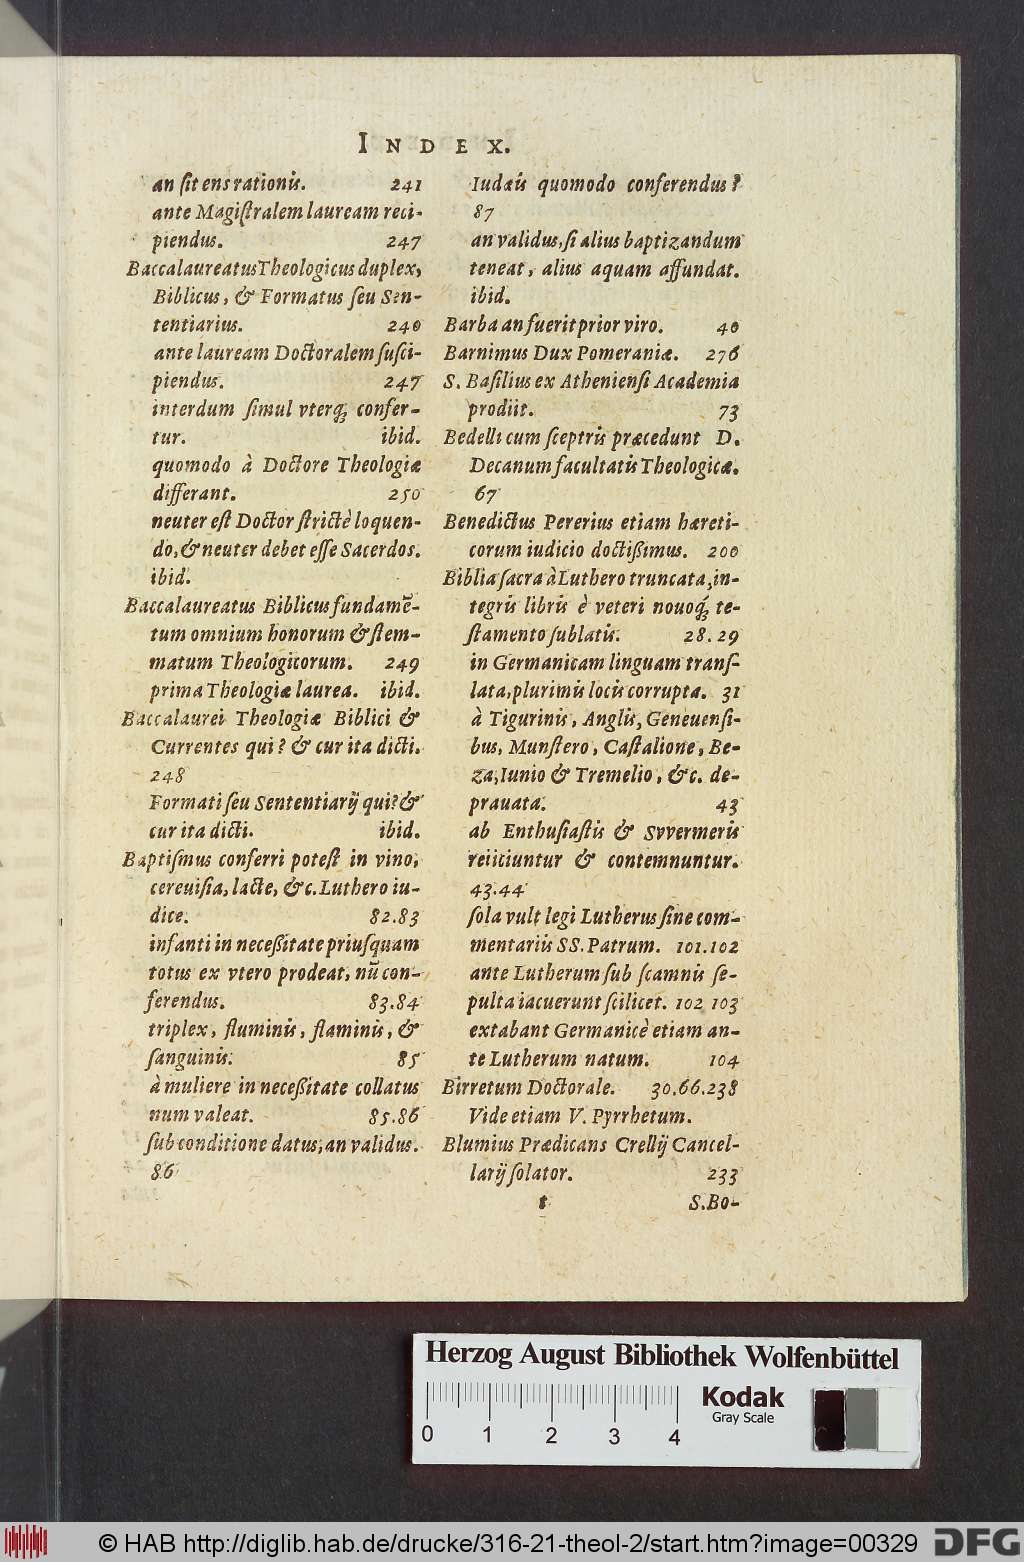 INDEX.
an ſit ens rationis. 241
ante Magiſtralem lauream reci-
piendus. 247
Baccalaureatus Theologicus duplex,
Biblicus, & Formatus ſeu Sen-
tentiarius. 240
ante lauream Doctoralem ſuſci-
piendus. 247
interdum ſimul vterq́; confer-
tur. ibid.
quomodo à Doctore Theologiæ
differant. 250
neuter eſt Doctor ſtrictè loquen-
do, & neuter debet eſſe Sacerdos.
ibid.
Baccalaureatus Biblicus fundamē-
tum omnium honorum & ſtem-
matum Theologicorum. 249
prima Theologiæ laurea. ibid.
Baccalaurei Theologiæ Biblici &
Currentes qui? & cur ita dicti.
248
Formati ſeu Sententiarij qui? &
cur ita dicti. ibid.
Baptiſmus conferri poteſt in vino,
cereuiſia, lacte, &c. Luthero iu-
dice. 82.83
infanti in neceßitate priuſquam
totus ex vtero prodeat, nū con-
ferendus. 83.84
triplex, fluminis, flaminis, &
ſanguinis. 85
à muliere in neceßitate collatus
num valeat. 85.86
ſub conditione datus, an validus.
86
Iudæis quomodo conferendus?
87
an validus, ſi alius baptizandum
teneat, alius aquam affundat.
ibid.
Barba an fuerit prior viro. 40
Barnimus Dux Pomeraniæ. 276
S. Baſilius ex Athenienſi Academia
prodiit. 73
Bedelli cum ſceptris præcedunt D.
Decanum facultatis Theologicæ.
67
Benedictus Pererius etiam hæreti-
corum iudicio doctißimus. 200
Biblia ſacra à Luthero truncata, in-
tegris libris è veteri nouoq́; te-
ſtamento ſublatis. 28.29
in Germanicam linguam tranſ-
lata, plurimis locis corrupta. 31
à Tigurinis, Anglis, Geneuenſi-
bus, Munſtero, Caſtalione, Be-
za, Iunio & Tremelio, &c. de-
prauata. 43
ab Enthuſiaſtis & Svvermeris
reiiciuntur & contemnuntur.
43.44
ſola vult legi Lutherus ſine com-
mentariis SS. Patrum. 101.102
ante Lutherum ſub ſcamnis ſe-
pulta iacuerunt ſcilicet. 102 103
extabant Germanicè etiam an-
te Lutherum natum. 104
Birretum Doctorale. 30.66.238
Vide etiam V. Pyrrhetum.
Blumius Prædicans Crellij Cancel-
larij ſolator. 233
t S. Bo-
Herzog August Bibliothek Wolfenbüttel
Kodak
Gray Scale
0 1 2 3 4
© HAB http://diglib.hab.de/drucke/316-21-theol-2/start.htm?image=00329
DFG